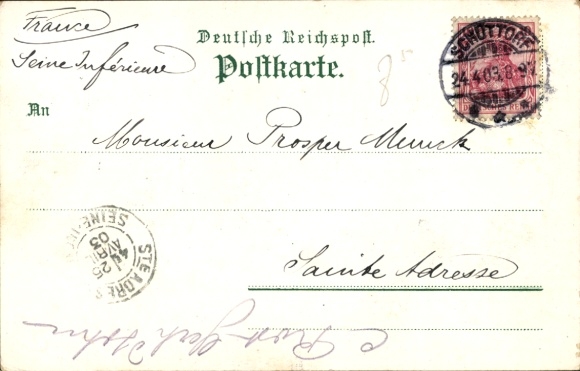 France
Seine Inférieure
Deutsche Reichspost.
Postkarte.
SCHÜTTORF
24.4.03.8-9V.
An
Monsieur Prosper
STE ADRESSE
25
AVRIL
03
SEINE-INF
Sainte Adresse